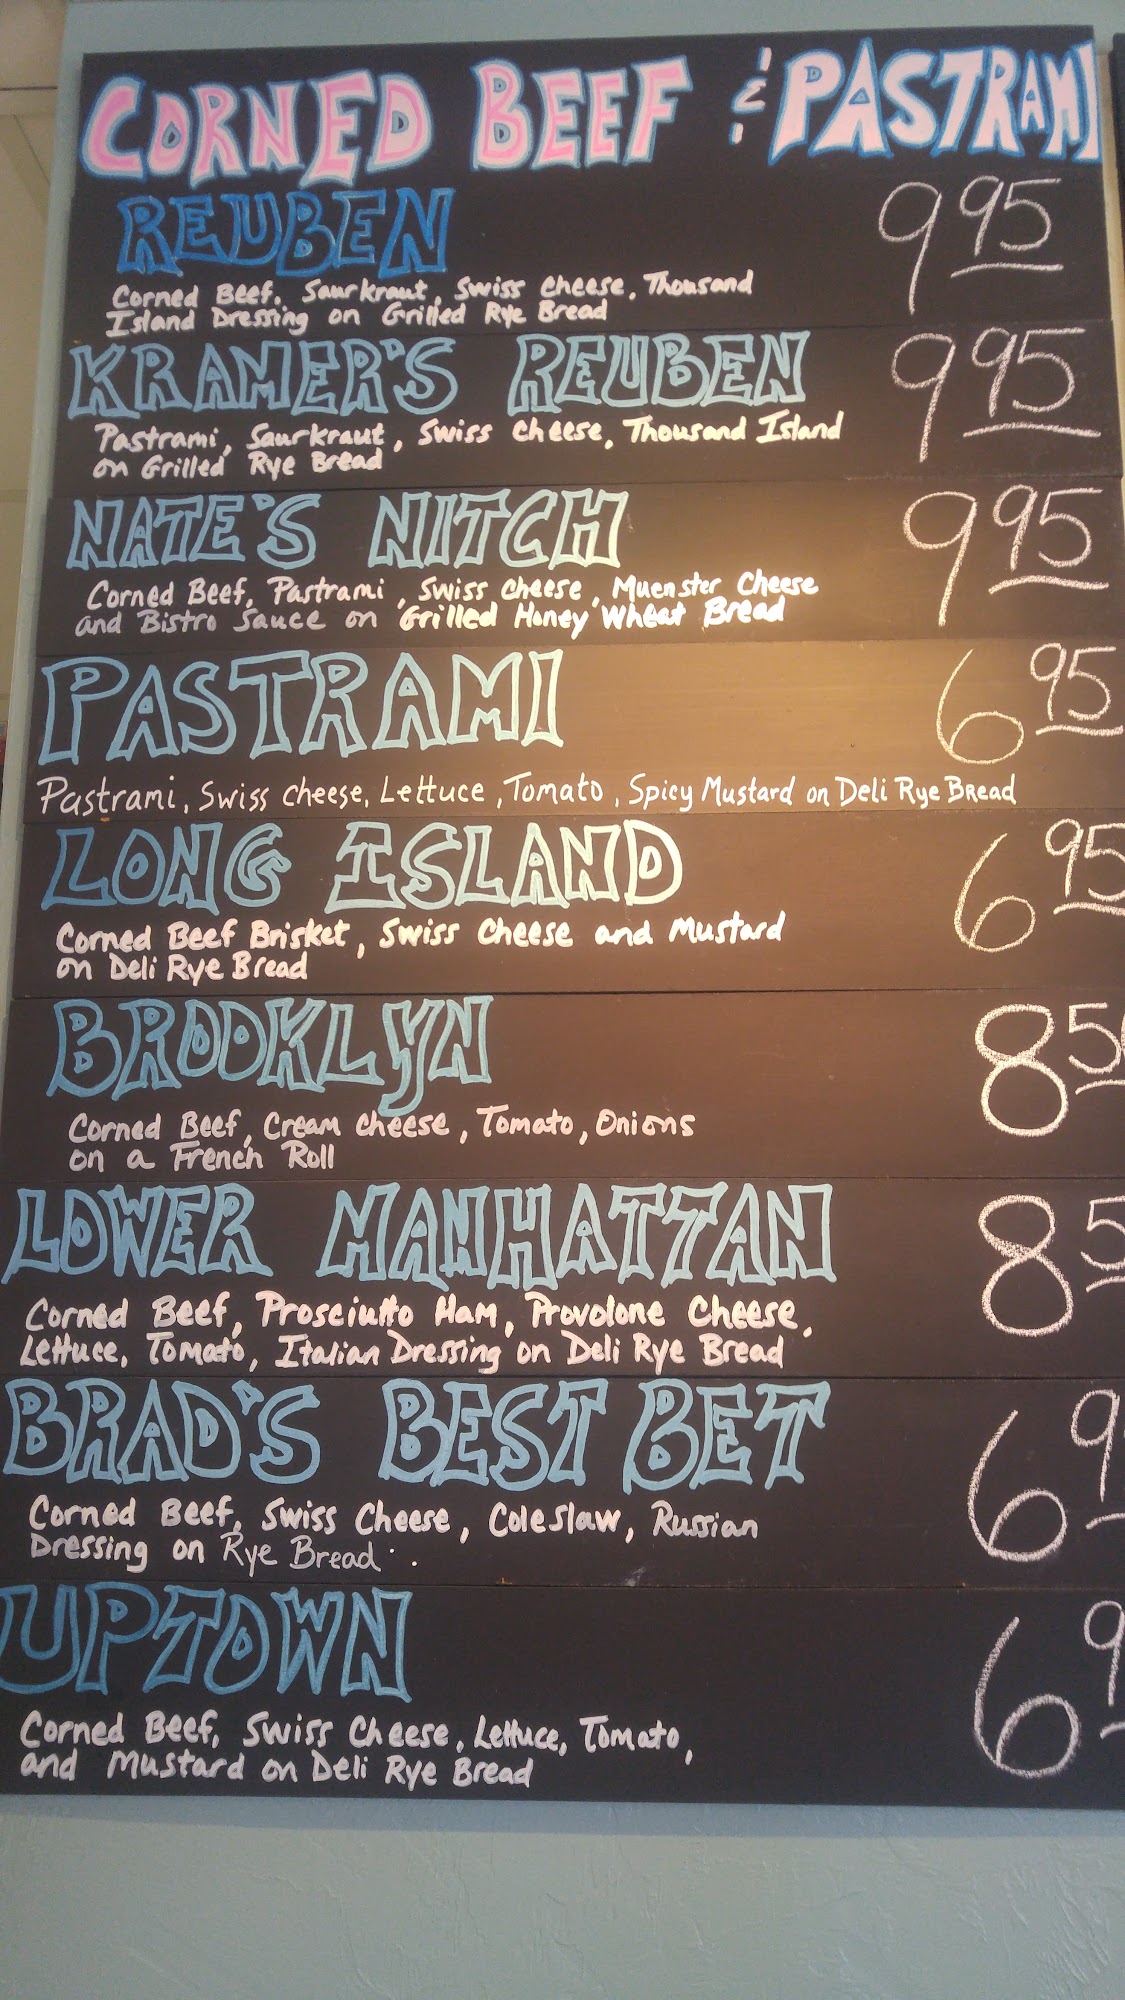 CORNED BEEF & PASTRAMI
REUBEN 9 95
Corned Beef, Saurkraut, Swiss Cheese, Thousand
Island Dressing on Grilled Rye Bread
KRAMER'S REUBEN 9 95
Pastrami, Saurkraut, Swiss Cheese, Thousand Island
on Grilled Rye Bread
NATE'S NITCH 9 95
Corned Beef, Pastrami, Swiss Cheese, Muenster Cheese
and Bistro Sauce on Grilled Honey Wheat Bread
PASTRAMI 6 95
Pastrami, Swiss Cheese, Lettuce, Tomato, Spicy Mustard on Deli Rye Bread
LONG ISLAND 6 95
Corned Beef Brisket, Swiss Cheese and Mustard
on Deli Rye Bread
BROOKLYN 8 50
Corned Beef, Cream Cheese, Tomato, Onions
on a French Roll
LOWER MANHATTAN 8 5
Corned Beef, Prosciutto Ham, Provolone Cheese,
Lettuce, Tomato, Italian Dressing on Deli Rye Bread
BRAD'S BEST BET 6 9
Corned Beef, Swiss Cheese, Coleslaw, Russian
Dressing on Rye Bread
UPTOWN 6 9
Corned Beef, Swiss Cheese, Lettuce, Tomato,
and Mustard on Deli Rye Bread